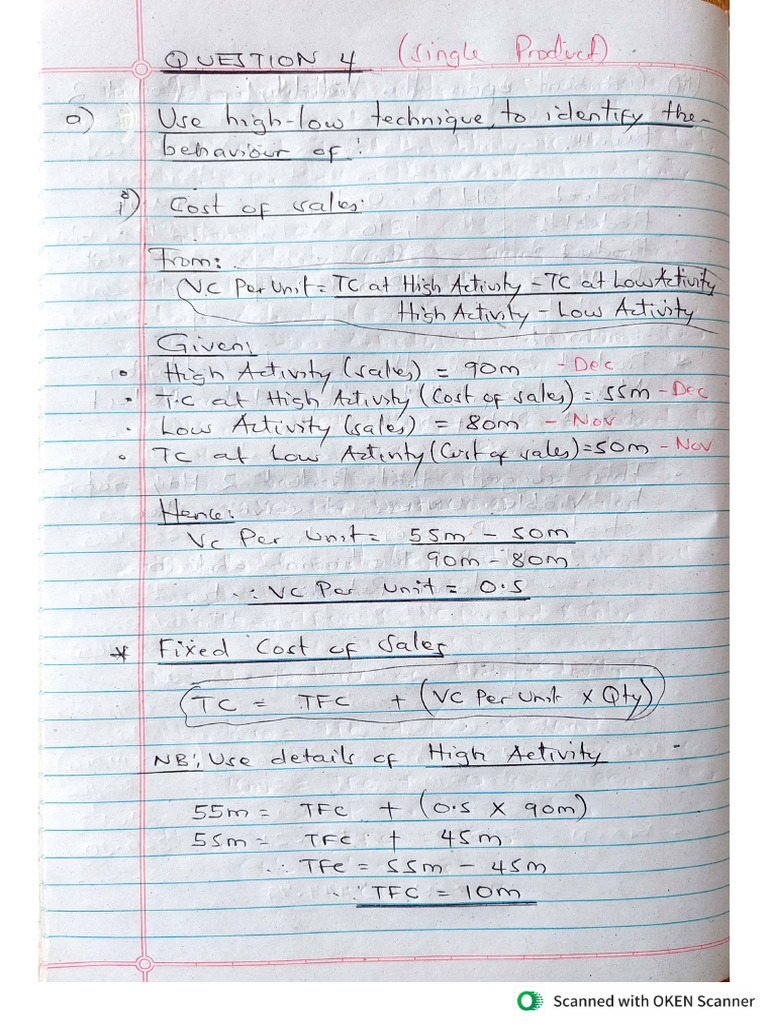 QUESTION 4 (Single Product)
a) Use high-low technique, to identify the
behaviour of:
i) Cost of sales:
From:
VC Per Unit = TC at High Activity - TC at Low Activity
High Activity - Low Activity
Given:
• High Activity (sales) = 90m - Dec
• T.C at High Activity (Cost of sales) = 55m - Dec
• Low Activity (sales) = 80m - Nov
• TC at Low Activity (Cost of sales) = 50m - Nov
Hence:
VC Per Unit = 55m - 50m
90m - 80m
∴ VC Per Unit = 0.5
* Fixed Cost of Sales
TC = TFC + (VC Per Unit x Qty)
NB: Use details of High Activity
55m = TFC + (0.5 x 90m)
55m = TFC + 45m
∴ TFC = 55m - 45m
∴ TFC = 10m
Scanned with OKEN Scanner